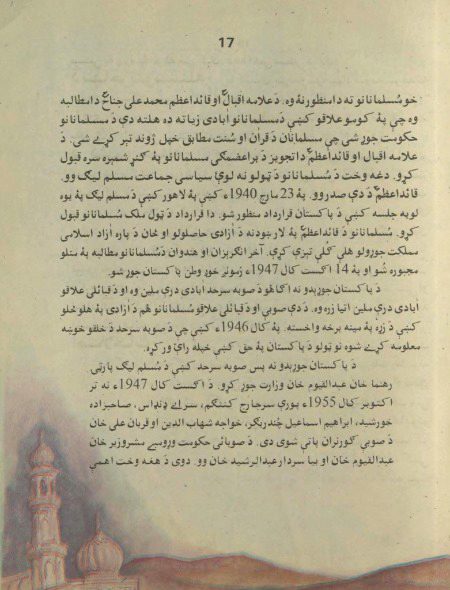 17
خو مُسلمانانو ته دا منظورنهٔ وه. دَ علامه اقبالؒ او قائداعظم محمد علی جناحؒ دا مطالبه
وه چې پهٔ کومو علاقو کښې دَ مسلمانانو ابادي زياته ده هلته دې دَ مسلمانانو
حکومت جوړ شي چې مسلمانان دَ قرآن او سُنت مطابق خپل ژوند تېر کړے شي. دَ
علامه اقبال او قائداعظمؒ دا تجويز دَ براعظمګي مسلمانانو پهٔ ګڼ شمېره سره قبول
کړو. دغه وخت دَ مُسلمانانو دَ ټولو نه لوې سياسي جماعت مسلم ليګ وو.
قائداعظمؒ دَ دې صدر وو. پهٔ 23 مارچ 1940ء کښې پهٔ لاهور کښې دَ مسلم ليګ پهٔ يوه
لويه جلسه کښې دَ پاکستان قرارداد منظور شو. دا قرارداد دَ ټول ملک مُسلمانانو قبول
کړو. مُسلمانانو دَ قائداعظمؒ پهٔ لارښودنه دَ ازادۍ حاصلولو او ځان دَ پاره ازاد اسلامي
مملکت جوړولو هلې ګلې تېزې کړې. آخر انګريزان او هندوان دَ مُسلمانانو مطالبه پهٔ منلو
مجبوره شُو او پهٔ 14 اګست کال 1947ء زمونږ خوږ وطن پاکستان جوړ شو.
دَ پاکستان جوړېدو نه اګاهو دَ صوبه سرحد ابادي درې ملين وه او دَ قبائلي علاقو
ابادي درې ملين اتيا زره وه. دَ دې صوبې او دَ قبائلي علاقو مُسلمانانو هُم دَ ازادۍ پهٔ هلوځلو
کښې دَ زړهٔ پهٔ مينه برخه واخسته. پهٔ کال 1946ء کښې چې دَ صوبه سرحد دَ خلقو خوښه
معلومه کړے شوه نو ټولو دَ پاکستان پهٔ حق کښې خپله رائ ورکړه.
دَ پاکستان جوړېدو نه پس صوبه سرحد کښې دَ مُسلم ليګ پارټۍ
رهنما خان عبدالقيوم خان وزارت جوړ کړو. دَ اګست کال 1947ء نه تر
اکتوبر کال 1955ء پورې سرجارج کننګهم، سرامے ډنډاس، صاحبزاده
خورشيد، ابراهيم اسماعيل چُندريګر، خواجه شهاب الدين او قربان علي خان
دَ صوبې ګورنران پاتې شوي دي. دَ صوبائي حکومت وړومبے مشر وزير خان
عبدالقيوم خان او بيا سردار عبدالرشيد خان وو. دوی دَ هغه وخت اهمې